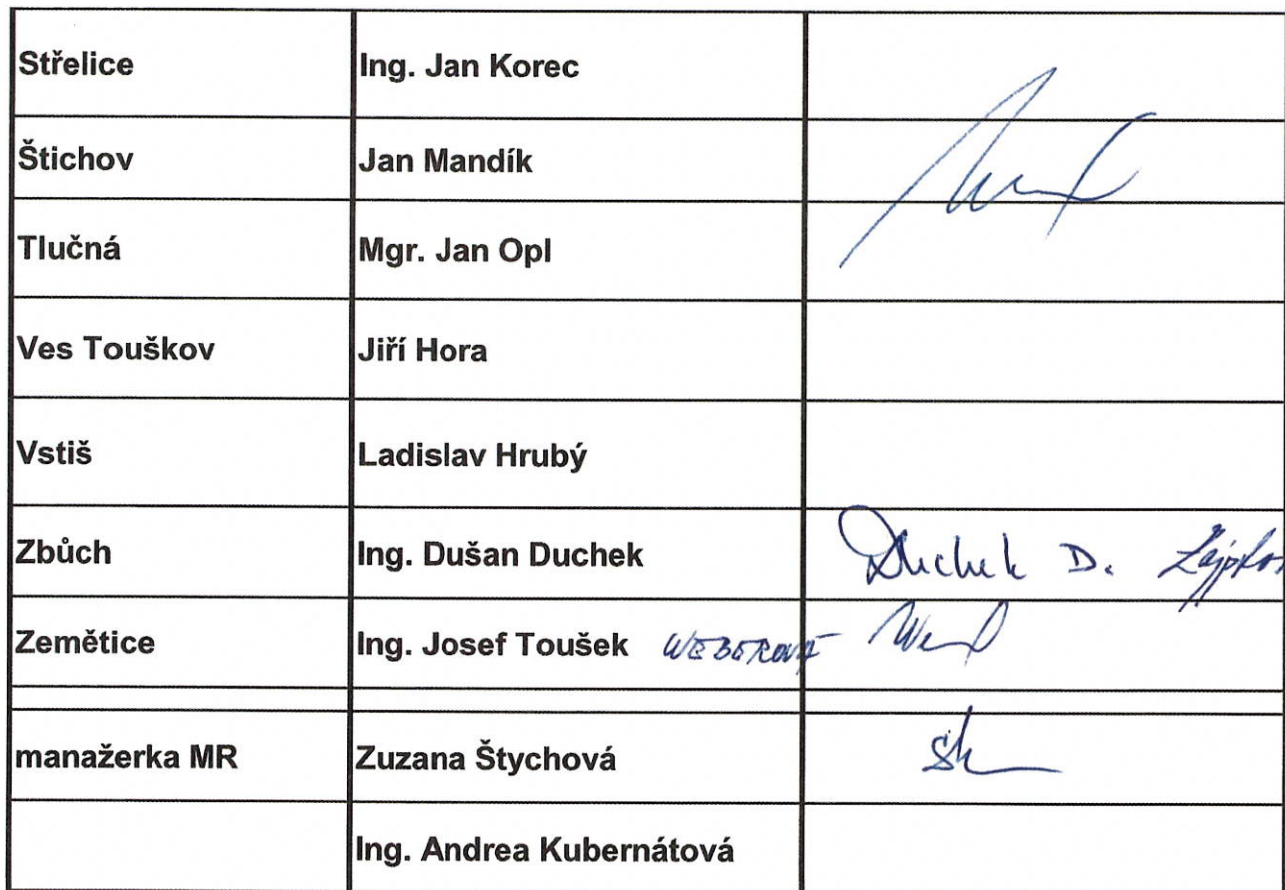 Střelice Ing. Jan Korec
Štichov Jan Mandík
Tlučná Mgr. Jan Opl
Ves Touškov Jiří Hora
Vstiš Ladislav Hrubý
Zbůch Ing. Dušan Duchek Duchek D.
Zemětice Ing. Josef Toušek WEBEROVÁ
manažerka MR Zuzana Štychová
Ing. Andrea Kubernátová